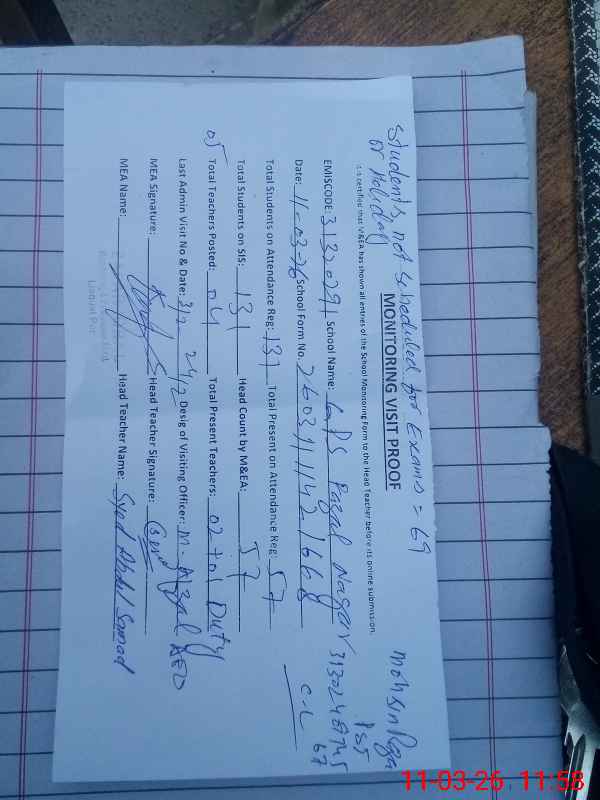 Students, not scheduled for Exams = 69
or Holiday
MONITORING VISIT PROOF
It is certified that M&EA has shown all entries of the School Monitoring Form to the Head Teacher before its online submission.
EMISCODE: 31320291 School Name: GPS Nagar
Date: 11-03-26 School Form No. 2603111421668
Total Students on Attendance Reg: 131 Total Present on Attendance Reg: 57
Total Students on SIS: 131 Head Count by M&EA: 57
05 Total Teachers Posted: 04 Total Present Teachers: 02+01 Duty
Last Admin Visit No & Date: 3/2 24/2 Desig of Visiting Officer: AEO
MEA Signature: Head Teacher Signature:
MEA Name: Head Teacher Name: Syed Abdul Samad
Mohsin Raza
PST
C-L
11-03-26 11:58